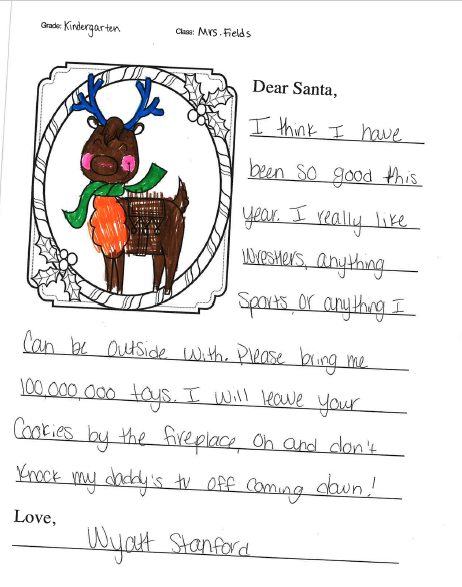 Grade: Kindergarten Class: Mrs. Fields
Dear Santa,
I think I have
been so good this
year. I really like
Wrestlers, anything
Sports, or anything I
Can be outside with. Please bring me
100,000,000 toys. I will leave your
Cookies by the fireplace, Oh and don't
Knock my daddy's tv off coming down!
Love,
Wyatt Stanford